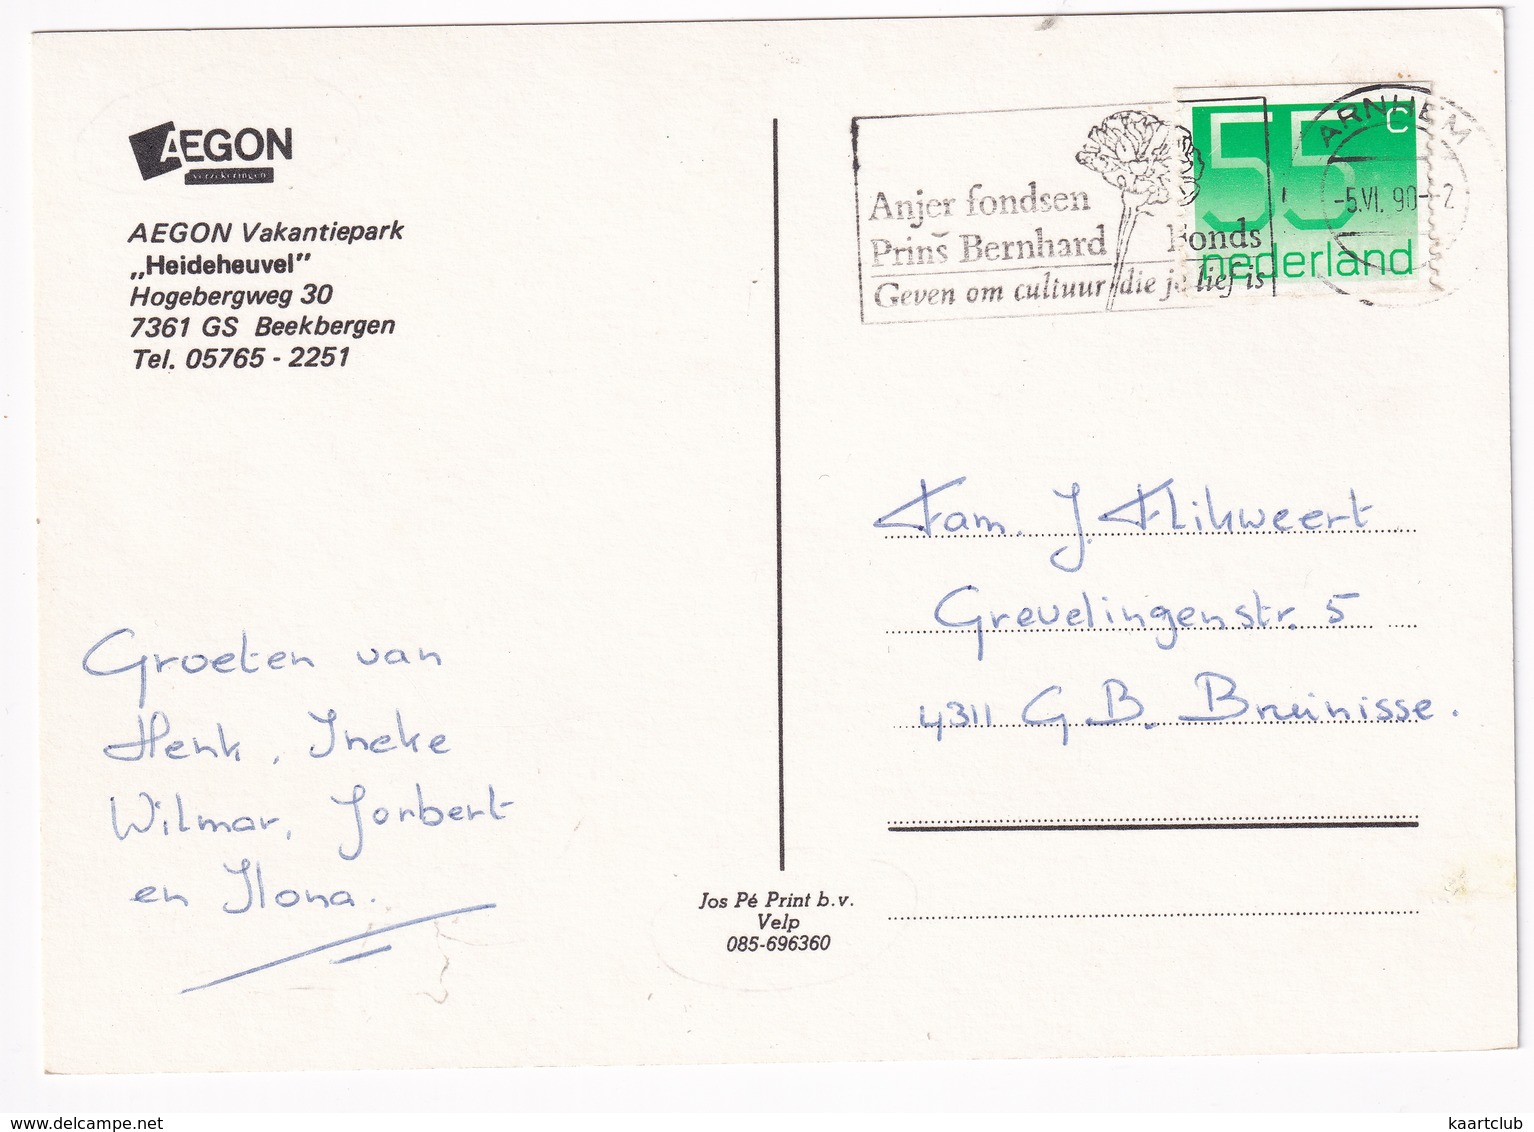 AEGON
verzekeringen
AEGON Vakantiepark
„Heideheuvel"
Hogebergweg 30
7361 GS Beekbergen
Tel. 05765 - 2251
Groeten van
Henk, Ineke
Wilmar, Jorbert
en Ilona.
Jos Pé Print b.v.
Velp
085-696360
Anjer fondsen
Prins Bernhard Fonds
Geven om cultuur die je lief is
55 c
nederland
ARNHEM
-5.VI. 90-12
Fam. J. Flikweert
Grevelingenstr. 5
4311 G B. Bruinisse.
delcampe.net
kaartclub